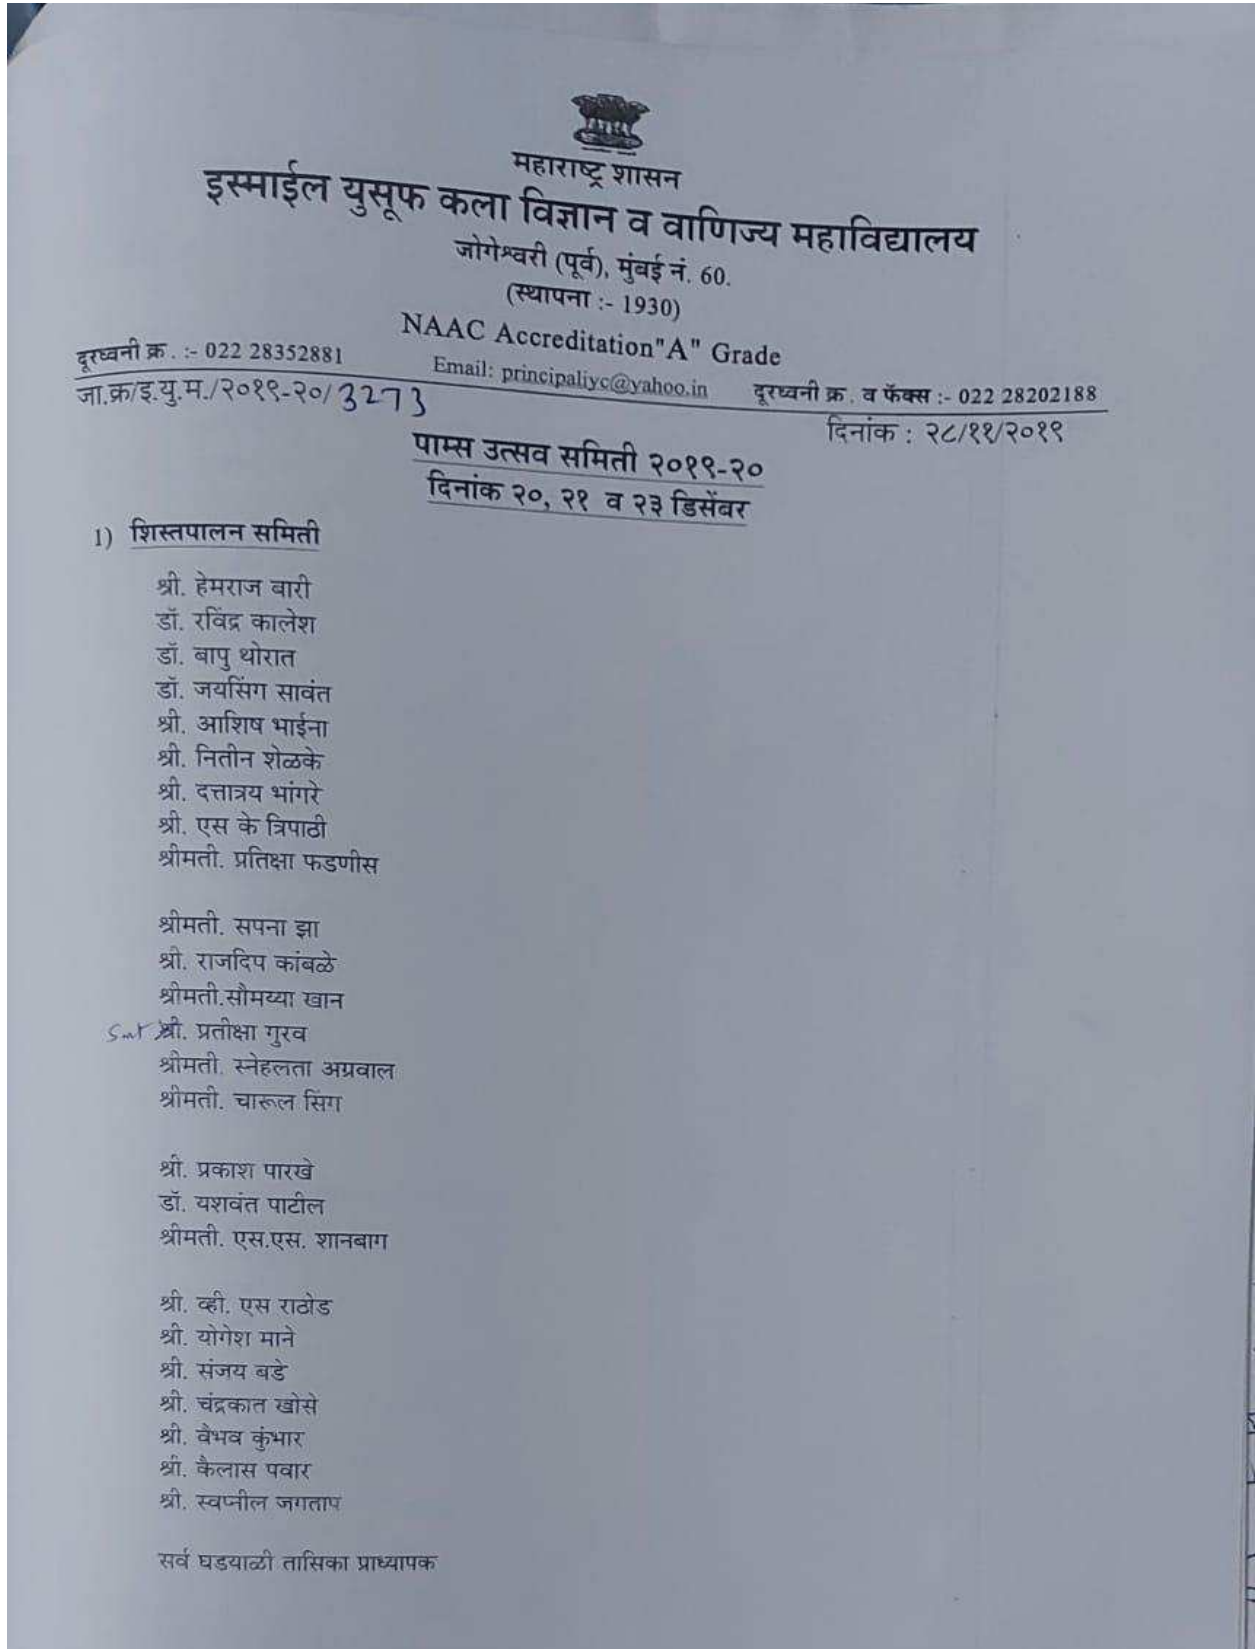 महाराष्ट्र शासन
इस्माईल युसूफ कला विज्ञान व वाणिज्य महाविद्यालय
जोगेश्वरी (पूर्व), मुंबई नं. 60.
(स्थापना :- 1930)
NAAC Accreditation"A" Grade
दूरध्वनी क्र . :- 022 28352881 Email: principaliyc@yahoo.in दूरध्वनी क्र . व फॅक्स :- 022 28202188
जा.क्र/इ.यु.म./२०१९-२०/3273 दिनांक : २८/११/२०१९
पाम्स उत्सव समिती २०१९-२०
दिनांक २०, २१ व २३ डिसेंबर
1) शिस्तपालन समिती
श्री. हेमराज बारी
डॉ. रविंद्र कालेश
डॉ. बापु थोरात
डॉ. जयसिंग सावंत
श्री. आशिष भाईना
श्री. नितीन शेळके
श्री. दत्तात्रय भांगरे
श्री. एस के त्रिपाठी
श्रीमती. प्रतिक्षा फडणीस
श्रीमती. सपना झा
श्री. राजदिप कांबळे
श्रीमती.सौमय्या खान
Smt श्री. प्रतीक्षा गुरव
श्रीमती. स्नेहलता अग्रवाल
श्रीमती. चारूल सिंग
श्री. प्रकाश पारखे
डॉ. यशवंत पाटील
श्रीमती. एस.एस. शानबाग
श्री. व्ही. एस राठोड
श्री. योगेश माने
श्री. संजय बडे
श्री. चंद्रकात खोसे
श्री. वैभव कुंभार
श्री. कैलास पवार
श्री. स्वप्नील जगताप
सर्व घडयाळी तासिका प्राध्यापक